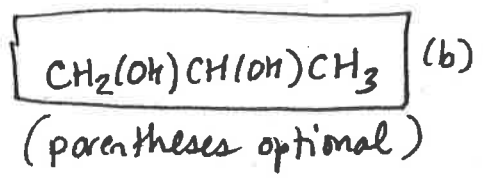 CH₂(OH)CH(OH)CH₃ (b)
(parentheses optional)